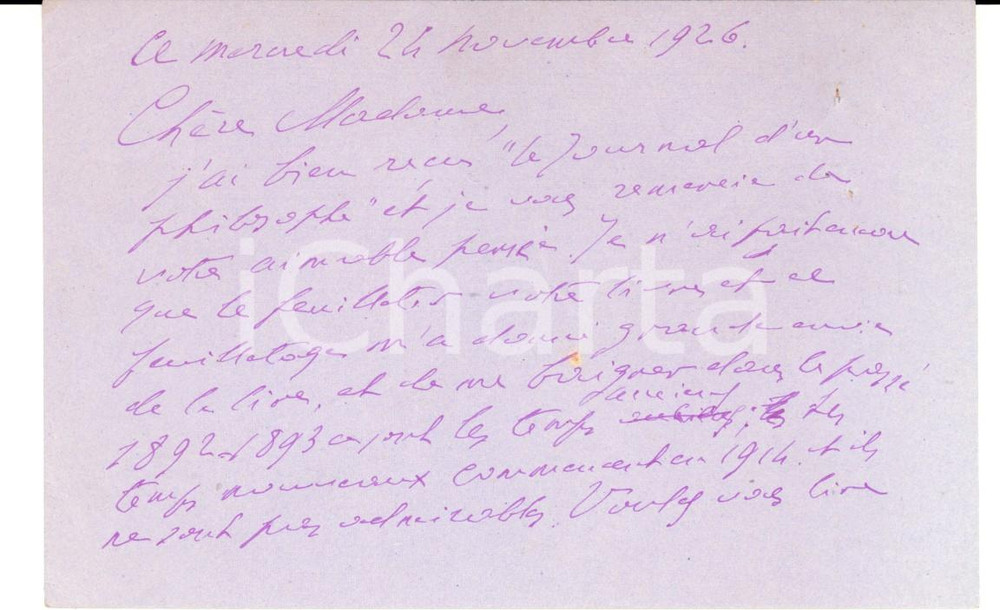 Ce mercredi 24 novembre 1926.
Chère Madame,
j'ai bien reçu "le Journal d'un
philosophe" et je vous remercie de
votre aimable pensée. Je n'ai fait encore
que le feuilleter votre livre et ce
feuilletage m'a donné grande envie
de le lire, et de me baigner dans le passé
anciens
1892-1893 ce sont les temps les
temps nouveaux commencent en 1914. et ils
ne sont pas admirables. Voulez vous lire
iCharta